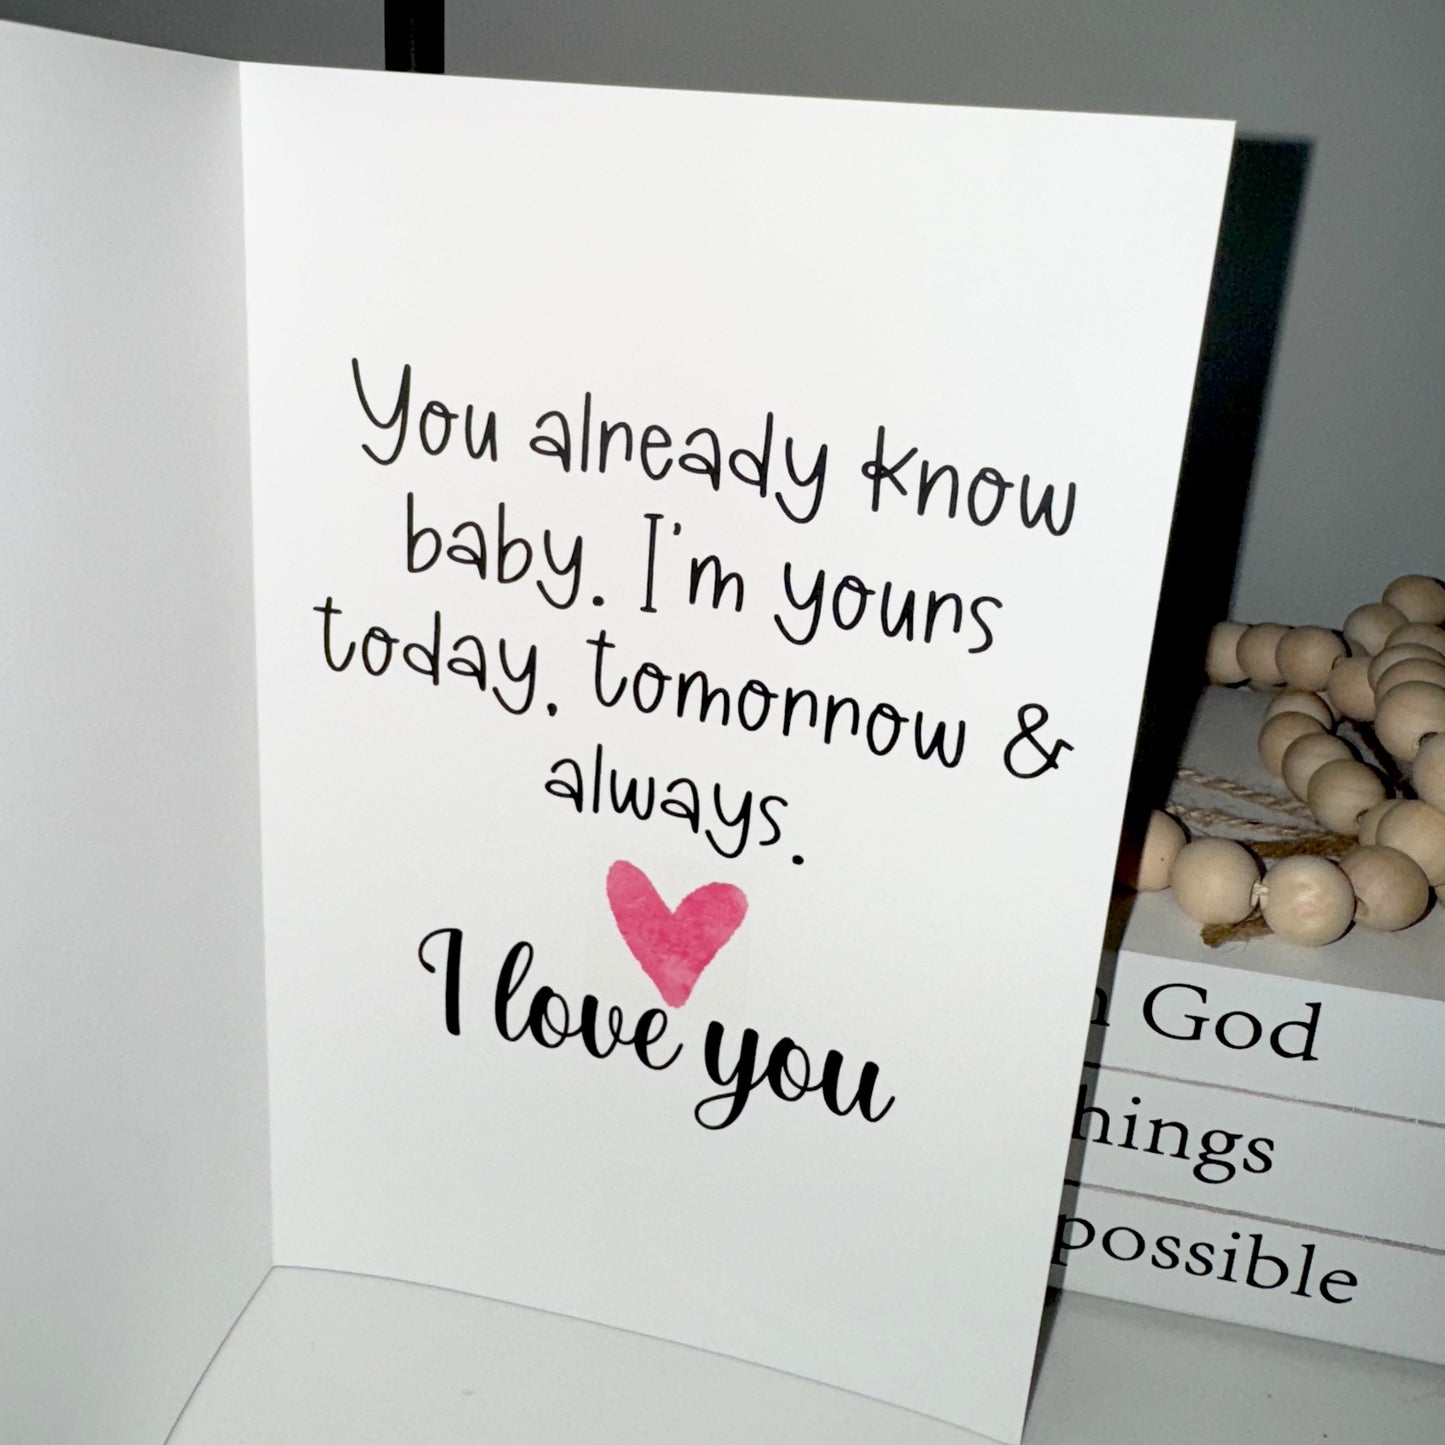 You already know
baby. I'm yours
today, tomorrow &
always.
I love you
God
hings
possible